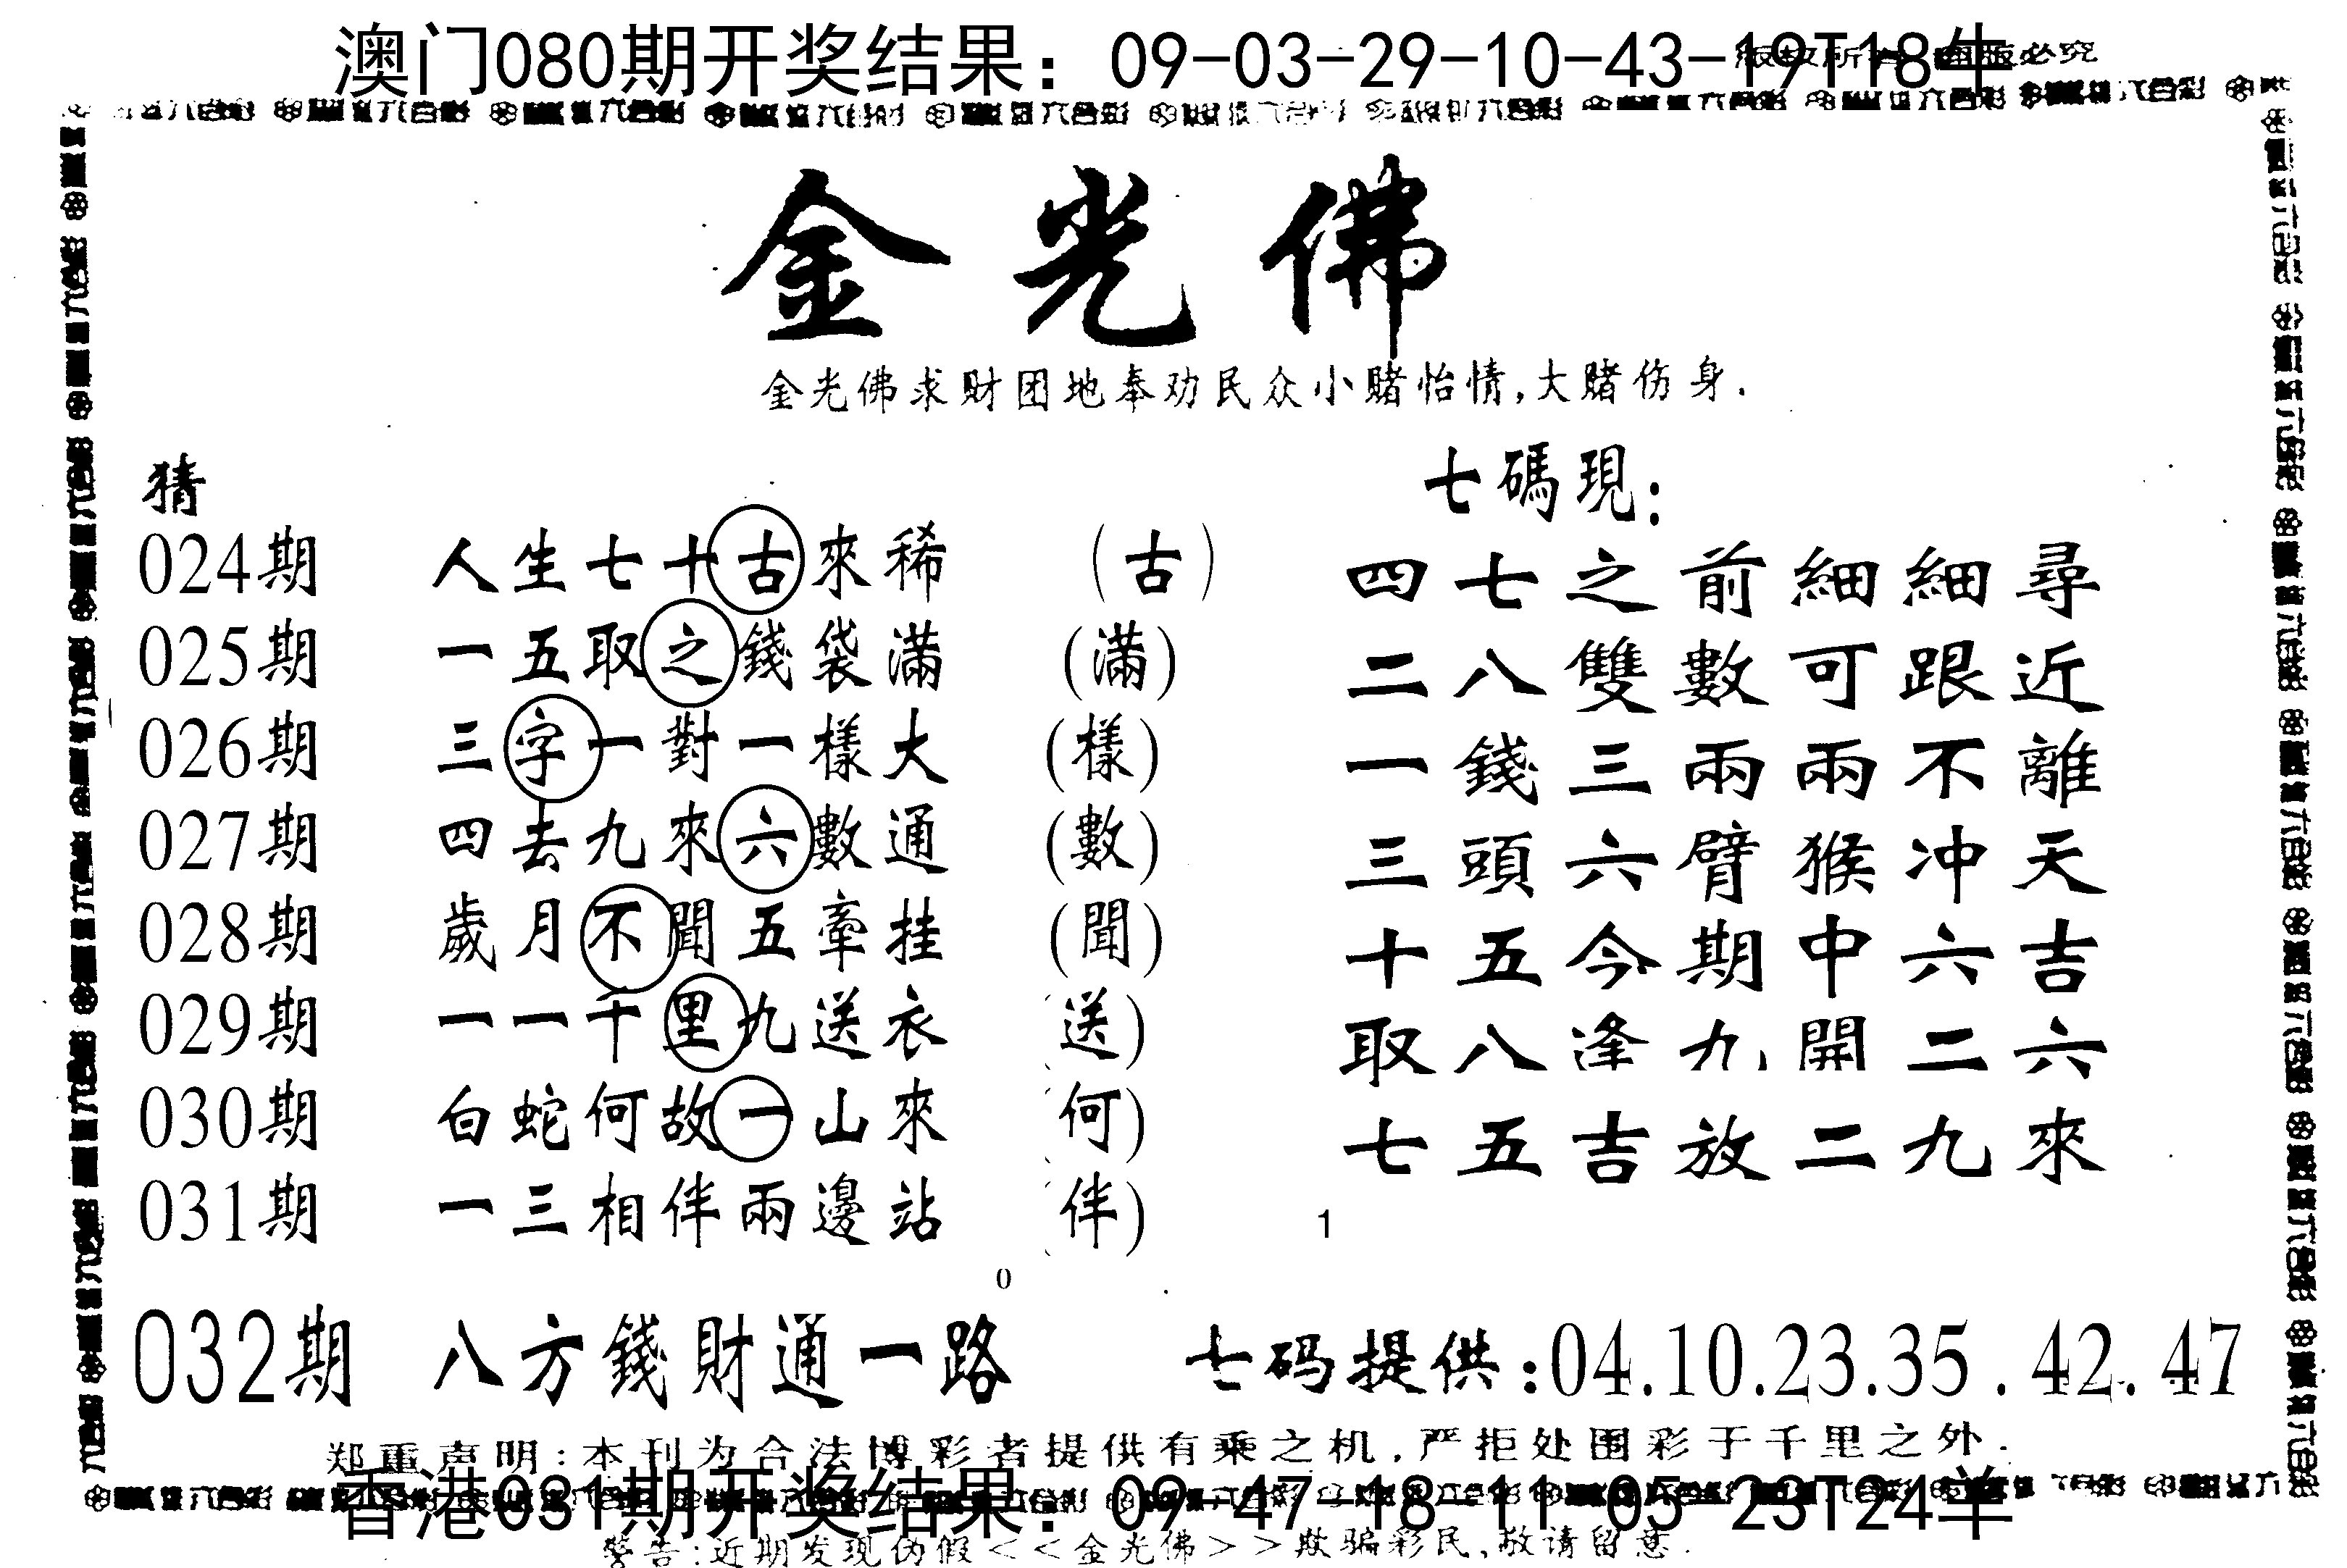 澳门080期开奖结果：09-03-29-10-43-19T18牛
版权所 必究
金光佛
金光佛求财团地奉劝民众小赌怡情,大赌伤身.
猜
024期 人生七十古來稀 (古)
025期 一五取之錢袋滿 (滿)
026期 三字一對一樣大 (樣)
027期 四去九來六數通 (數)
028期 歲月不聞五牽挂 (聞)
029期 一一千里九送衣 (送)
030期 白蛇何故一山來 (何)
031期 一三相伴兩邊站 (伴)
七碼現:
四七之前細細尋
二八雙數可跟近
一錢三兩兩不離
三頭六臂猴冲天
十五今期中六吉
取八逢九開二六
七五吉放二九來
1
0
032期 八方錢財通一路 七码提供:04.10.23.35.42.47
郑重声明:本刊为合法博彩者提供有乘之机,严拒处围彩于千里之外.
香港031期开奖结果：09-47-18-11-05-23T24单
警告:近期发现伪假<<金光佛>>欺骗彩民,敬请留意.